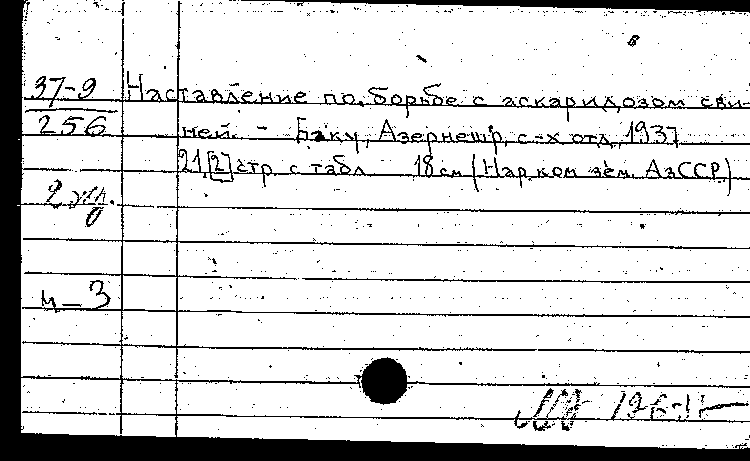 37-9 Наставление по борьбе с аскаридозом сви-
256 ней. - Баку, Азернешр, с-х отд., 1937
21,[2] стр. с табл. 18 см (Нарком зем. АзССР)
2
ч-3